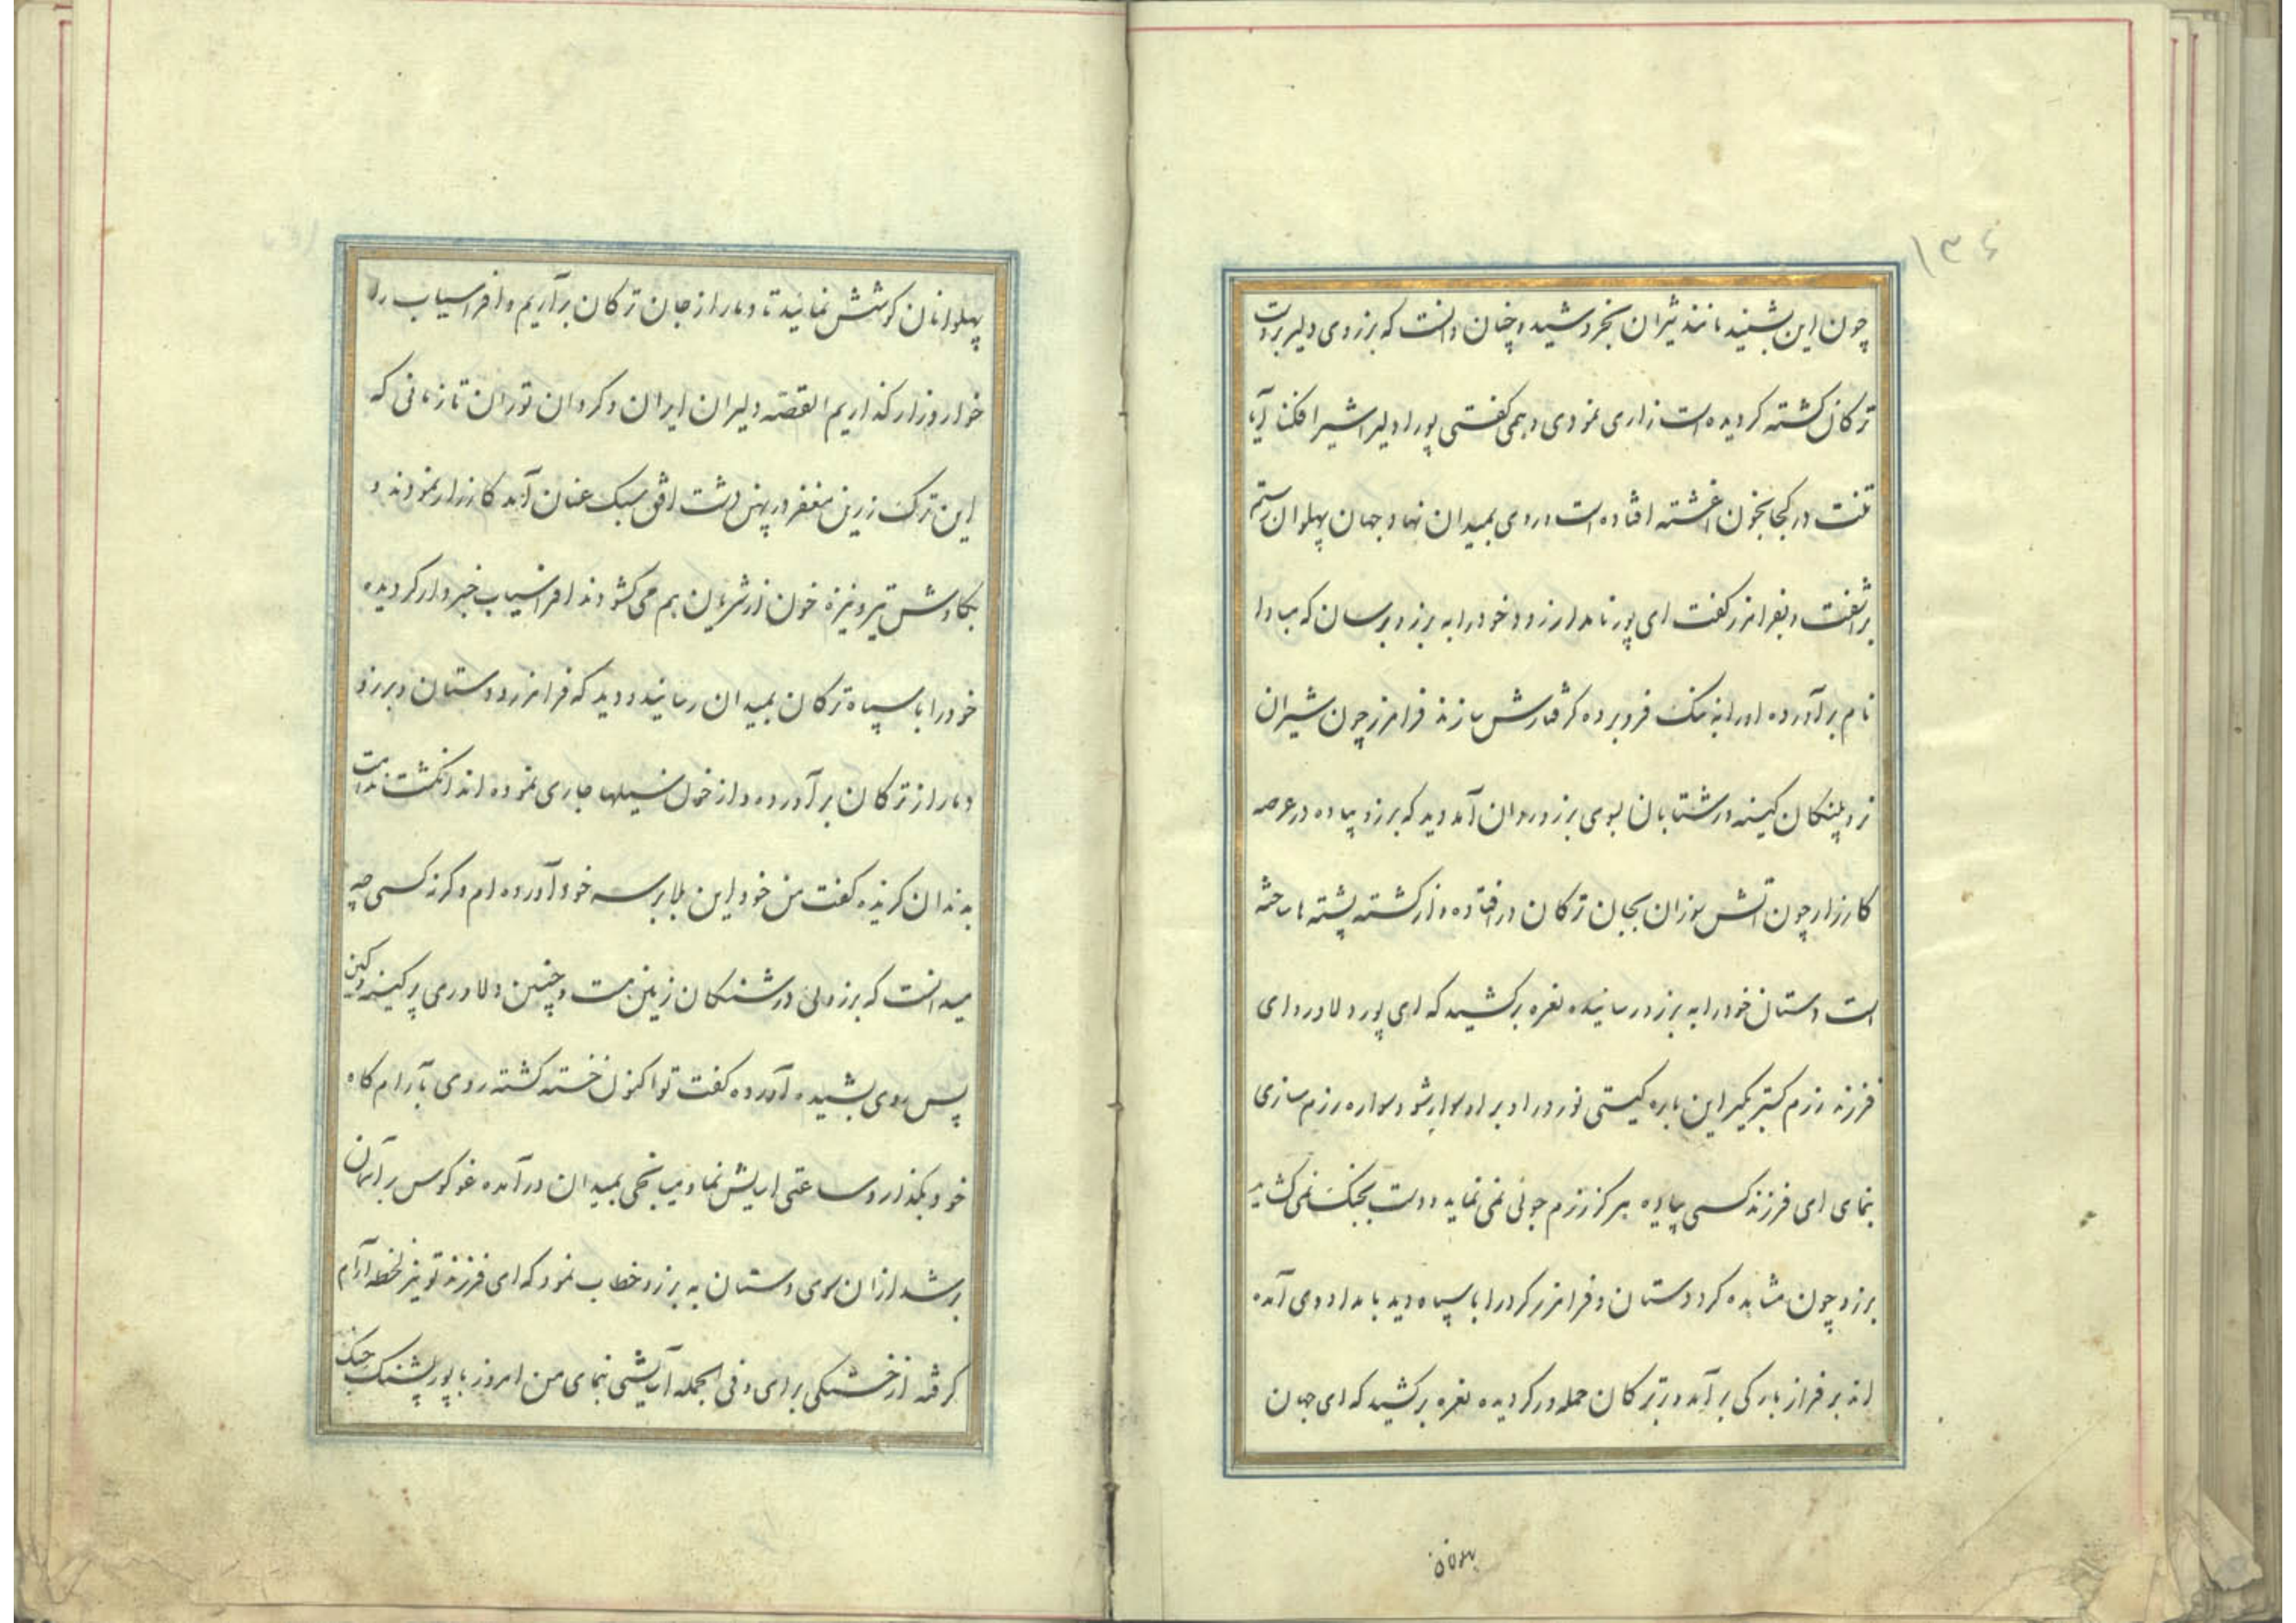 ۱۳۶
چون این بشنید مانند شیران بخروشید و چنان دانست که برزوی دلیر بردست
ترکان کشته کردیده است زاری نمودی و همی کفتی پورا دلیرا شیرافکنا آیا
تنت در کجا بخون اغشته افتاده است و روی بمیدان نهاد جهان پهلوان رستم
براشفت و بفرامرز کفت ای پور نامدار زود خود را به برزو برسان که مبادا
نام برآورده او را به ننک فرو برده کرفتارش سازند فرامرز چون شیران
نر و پلنکان کینه ور شتابان بسوی برزو روان آمد دید که برزو پیاده در عرصه
کارزار چون اتش سوزان بجان ترکان در افتاده و از کشته پشته ها ساخته
است دستان خود را به برزو رسانیده نعره برکشید که ای پور دلاور و ای
فرزند رزم کستر بکیر این باره کیتی نورد را و بر او سوار شو و سواره رزم سازی
بنمای ای فرزند کسی پیاده هرکز رزم جوئی نمی نماید و دست بجنک نمی کشاید
برزو چون مشاهده کرد دستان و فرامرز کرد را با سپاه دید بامداد وی آمده
اند بر فراز بارکی بر آمد و بر ترکان حمله ور کردیده نعره برکشید که ای جهان
پهلوانان
پهلوانان کوشش نمائید تا دمار از جان ترکان برآریم و افراسیاب را
خوار و زار کذاریم القصه دلیران ایران و کردان توران تا زمانی که
این ترک زرین مغفر در پهن دشت افق سبک عنان آمد کارزار نمودند و
بکاوش تیر و نیزه خون از شریان هم می کشودند افراسیاب خبردار کردیده
خود را با سپاه ترکان بمیدان رسانید و دید که فرامرز و دستان و برزو
دمار از ترکان برآورده و از خون سیلها جاری نموده اند انکشت ندامت
بدندان کزیده کفت من خود این بلا بر سر خود آورده ام و کرنه کسی چه
میدانست که برزوئی در شنکان زمین هست و چنین دلاوری پر کینه و کین
پس روی بشیده آورده کفت تو اکنون خسته کشته روی بآرام کاه
خود بکذار و ساعتی اسایش نما و میا بجنکی بمیدان در آمده غو کوس بر آسمان
بر شد از ان سوی دستان به برزو خطاب نمود که ای فرزند تو نیز لحظه آرام
کرفته از خستکی برای و فی الجمله آسایشی بنمای من امروز با پور پشنک جنک